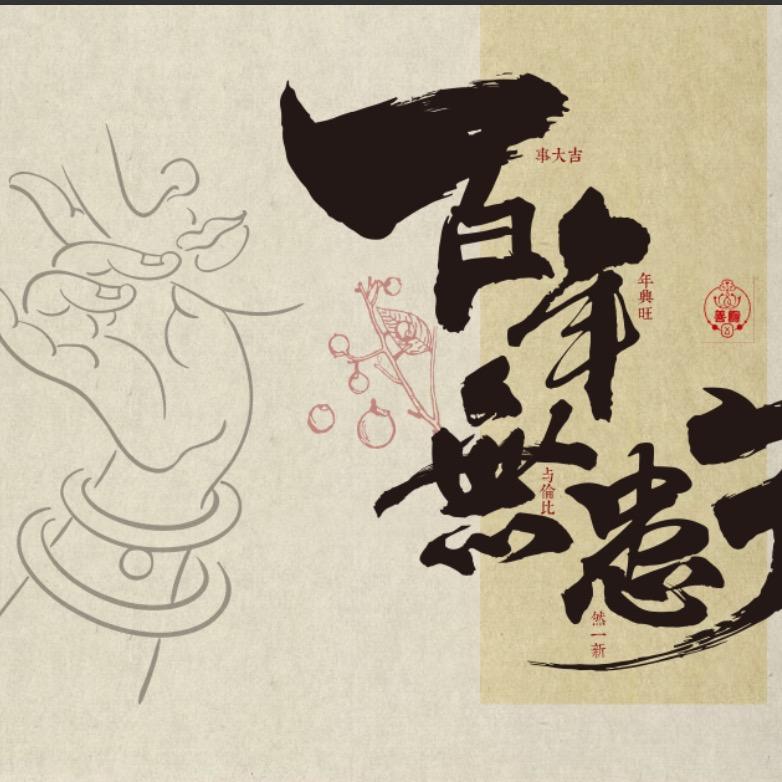 百年
無患
事大吉
年興旺
与倫比
然一新